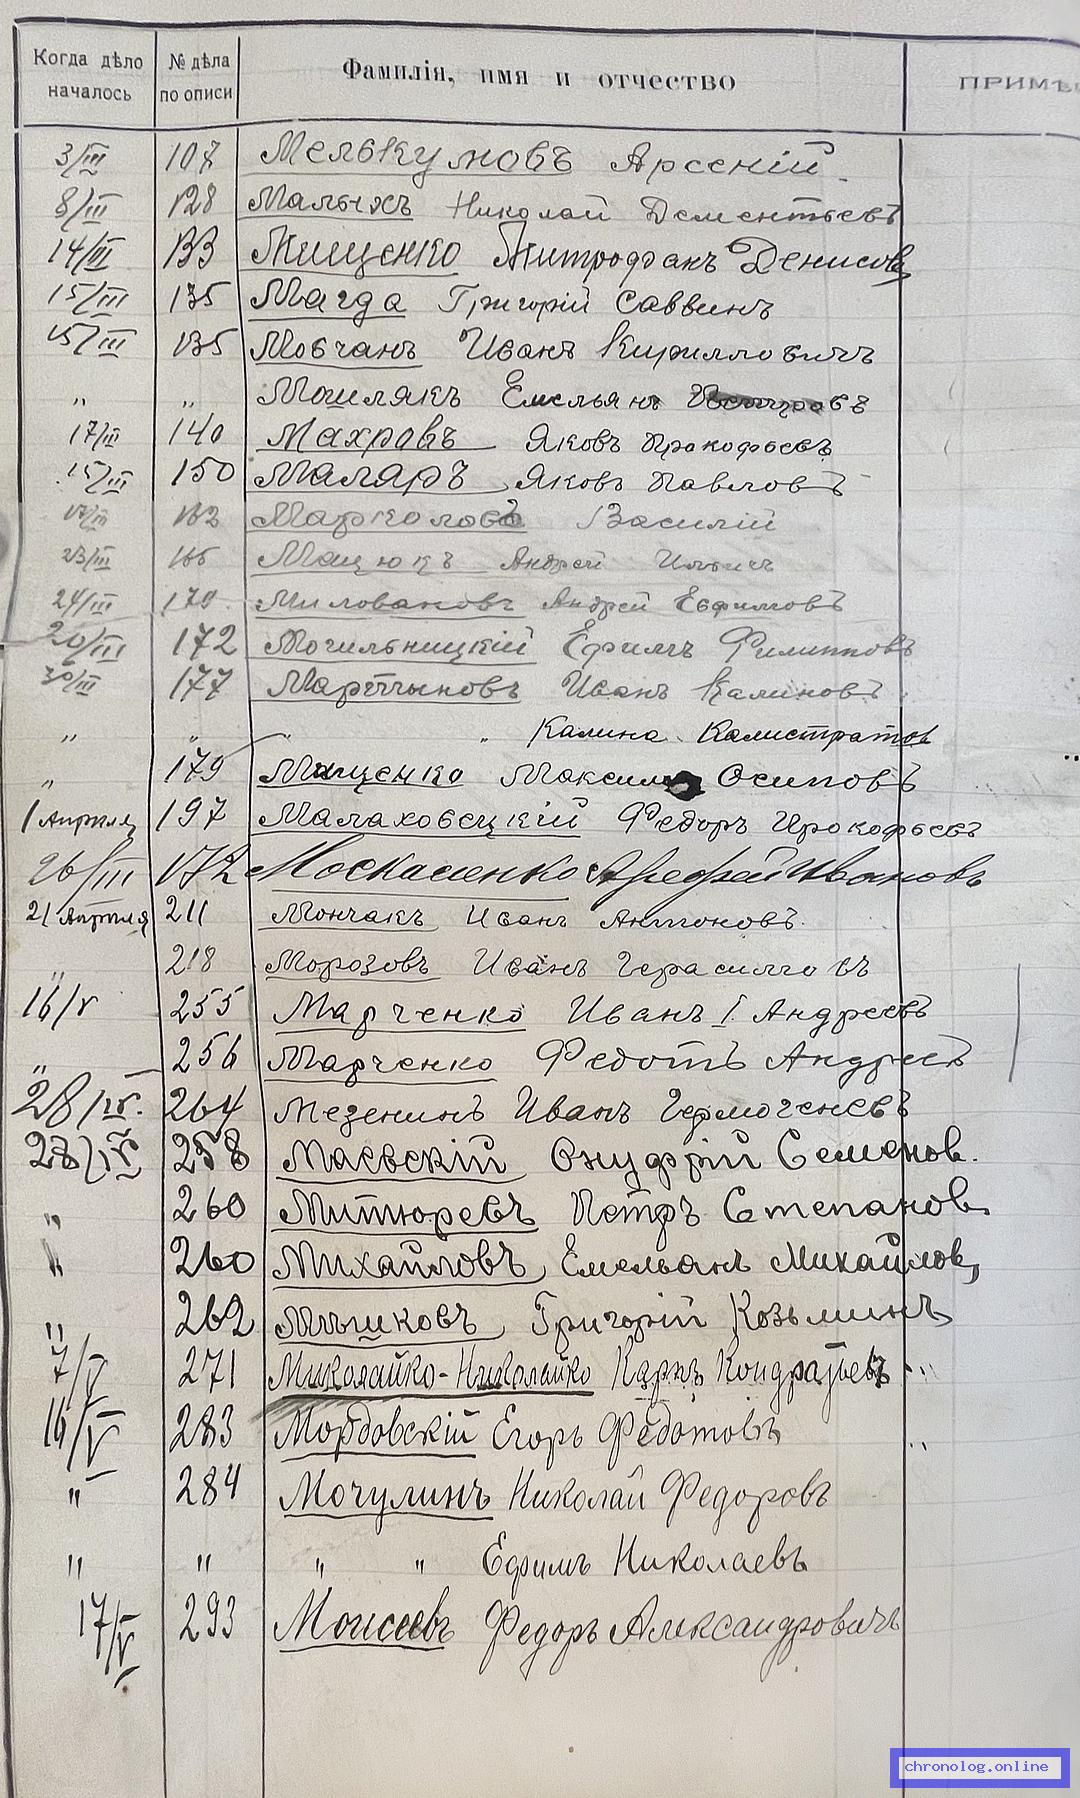 Когда дѣло началось № дѣла по описи Фамилія, имя и отчество ПРИМѢ
3/III 107 Мелькумовъ Арсеній.
8/III 128 Малыхъ Николай Дементьевъ
14/III 133 Мищенко Митрофанъ Денисовъ
15/III 135 Магда Григорій Саввинъ
15/III 135 Мовчанъ Иванъ Кирилловичъ
" " Мошлякъ Емельянъ
17/III 140 Махровъ Яковъ Прокофьевъ
15/III 150 Маляръ Яковъ Павловъ
17/III 162 Марколовъ Василій
23/III 166 Мацюкъ Андрей Ильичъ
24/III 170 Миловановъ Андрей Евфимовъ
20/III 172 Могильницкій Ефимъ Филипповъ
30/III 177 Мартыновъ Иванъ Калиновъ
" " " " Калина Калистратов
" 179 Мищенко Максимъ Осиповъ
1 Апрѣля 197 Малаховецкій Федоръ Прокофьевъ
26/III 172 Москаленко Иванов
21 Апрѣля 211 Мончакъ Иванъ Антоновъ.
" 218 Морозовъ Иванъ Герасимовъ
16/V 255 Марченко Иванъ I. Андреевъ
" 256 Марченко Федотъ Андреевъ
28/IV. 264 Мезенинъ Иванъ Гермогеневъ
28/IV 258 Маевскій Онуфрій Семенов.
" 260 Митюревъ Петръ Степанов.
" 260 Михайловъ Емельянъ Михайлов,
" 262 Мышковъ Григорій Козьминъ
7/V 271 Миколайко-Николайко Карпъ Кондратьевъ
16/V 283 Мордовскій Егоръ Федотовъ
" 284 Мочулинъ Николай Федоровъ
" " " " Ефимъ Николаевъ
17/V 293 Моисеевъ Федоръ Александровичъ
chronolog.online